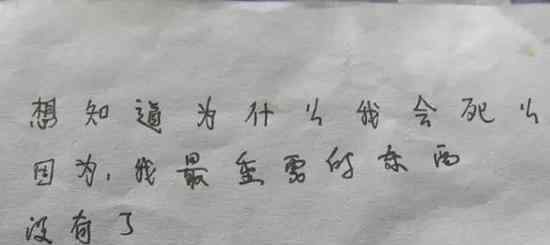 想知道为什么我会死么
因为，我最重要的东西
没有了